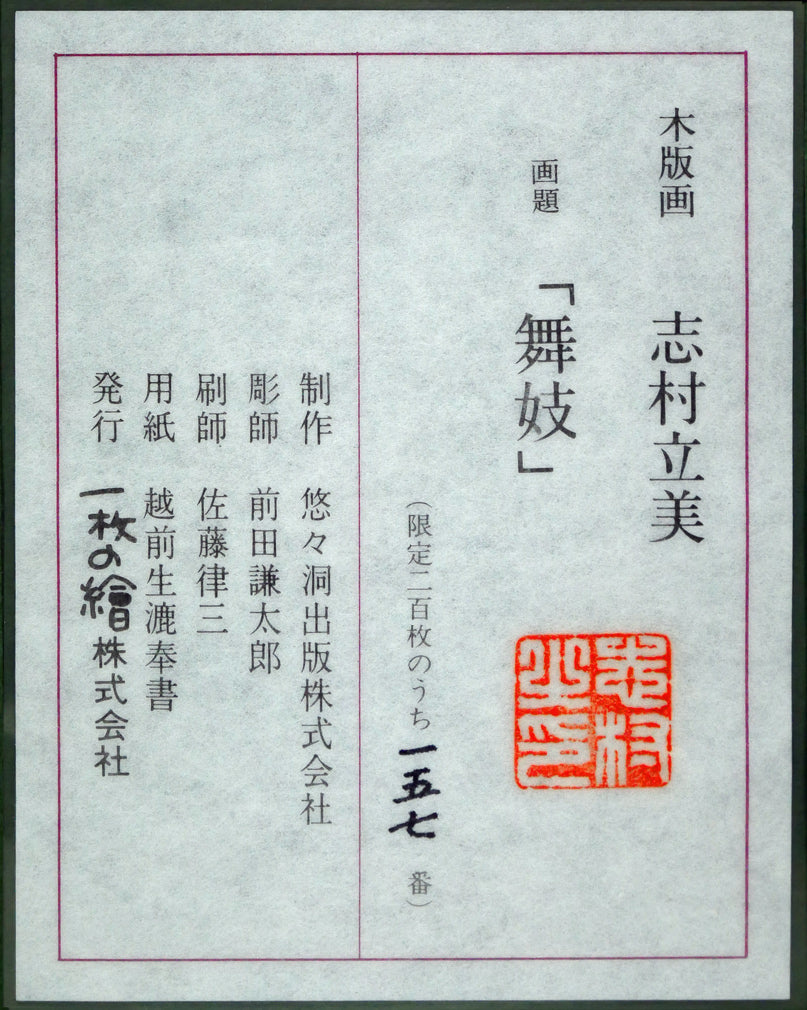 木版画 志村立美
画題 「舞妓」
(限定二百枚のうち 一五七 番)
制作 悠々洞出版株式会社
彫師 前田謙太郎
刷師 佐藤律三
用紙 越前生漉奉書
発行 一枚の繪株式会社